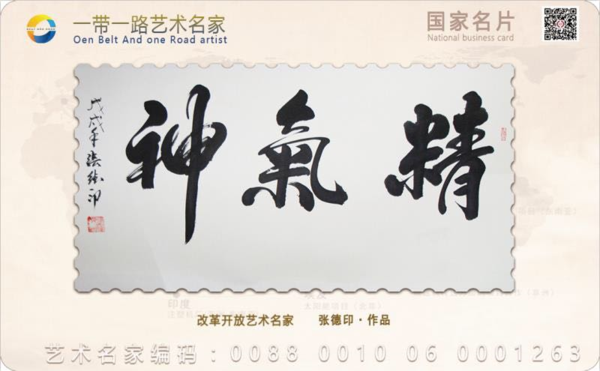 一带一路艺术名家
Oen Belt And one Road artist
国家名片
National business card
精氣神
戊戌年張德印
改革开放艺术名家 张德印·作品
艺术名家编码:0088 0010 06 0001263